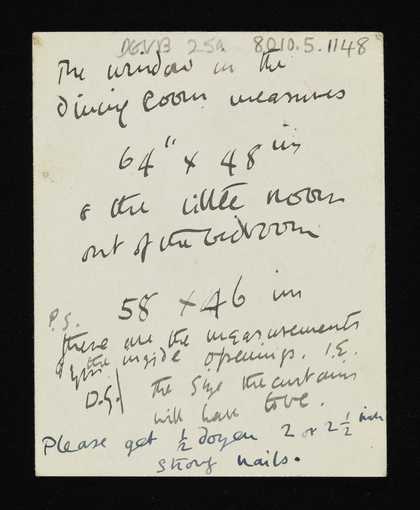 DGVB 25a 8010.5.1148
The window in the
Dining Room measures
64" x 48 in
& the little room
out of the bedroom
58 x 46 in
P.S.
these are the measurements
of the inside openings. I.E.
D.G. the size the curtains
will have to be.
Please get ½ dozen 2 or 2½ inch
strong nails.